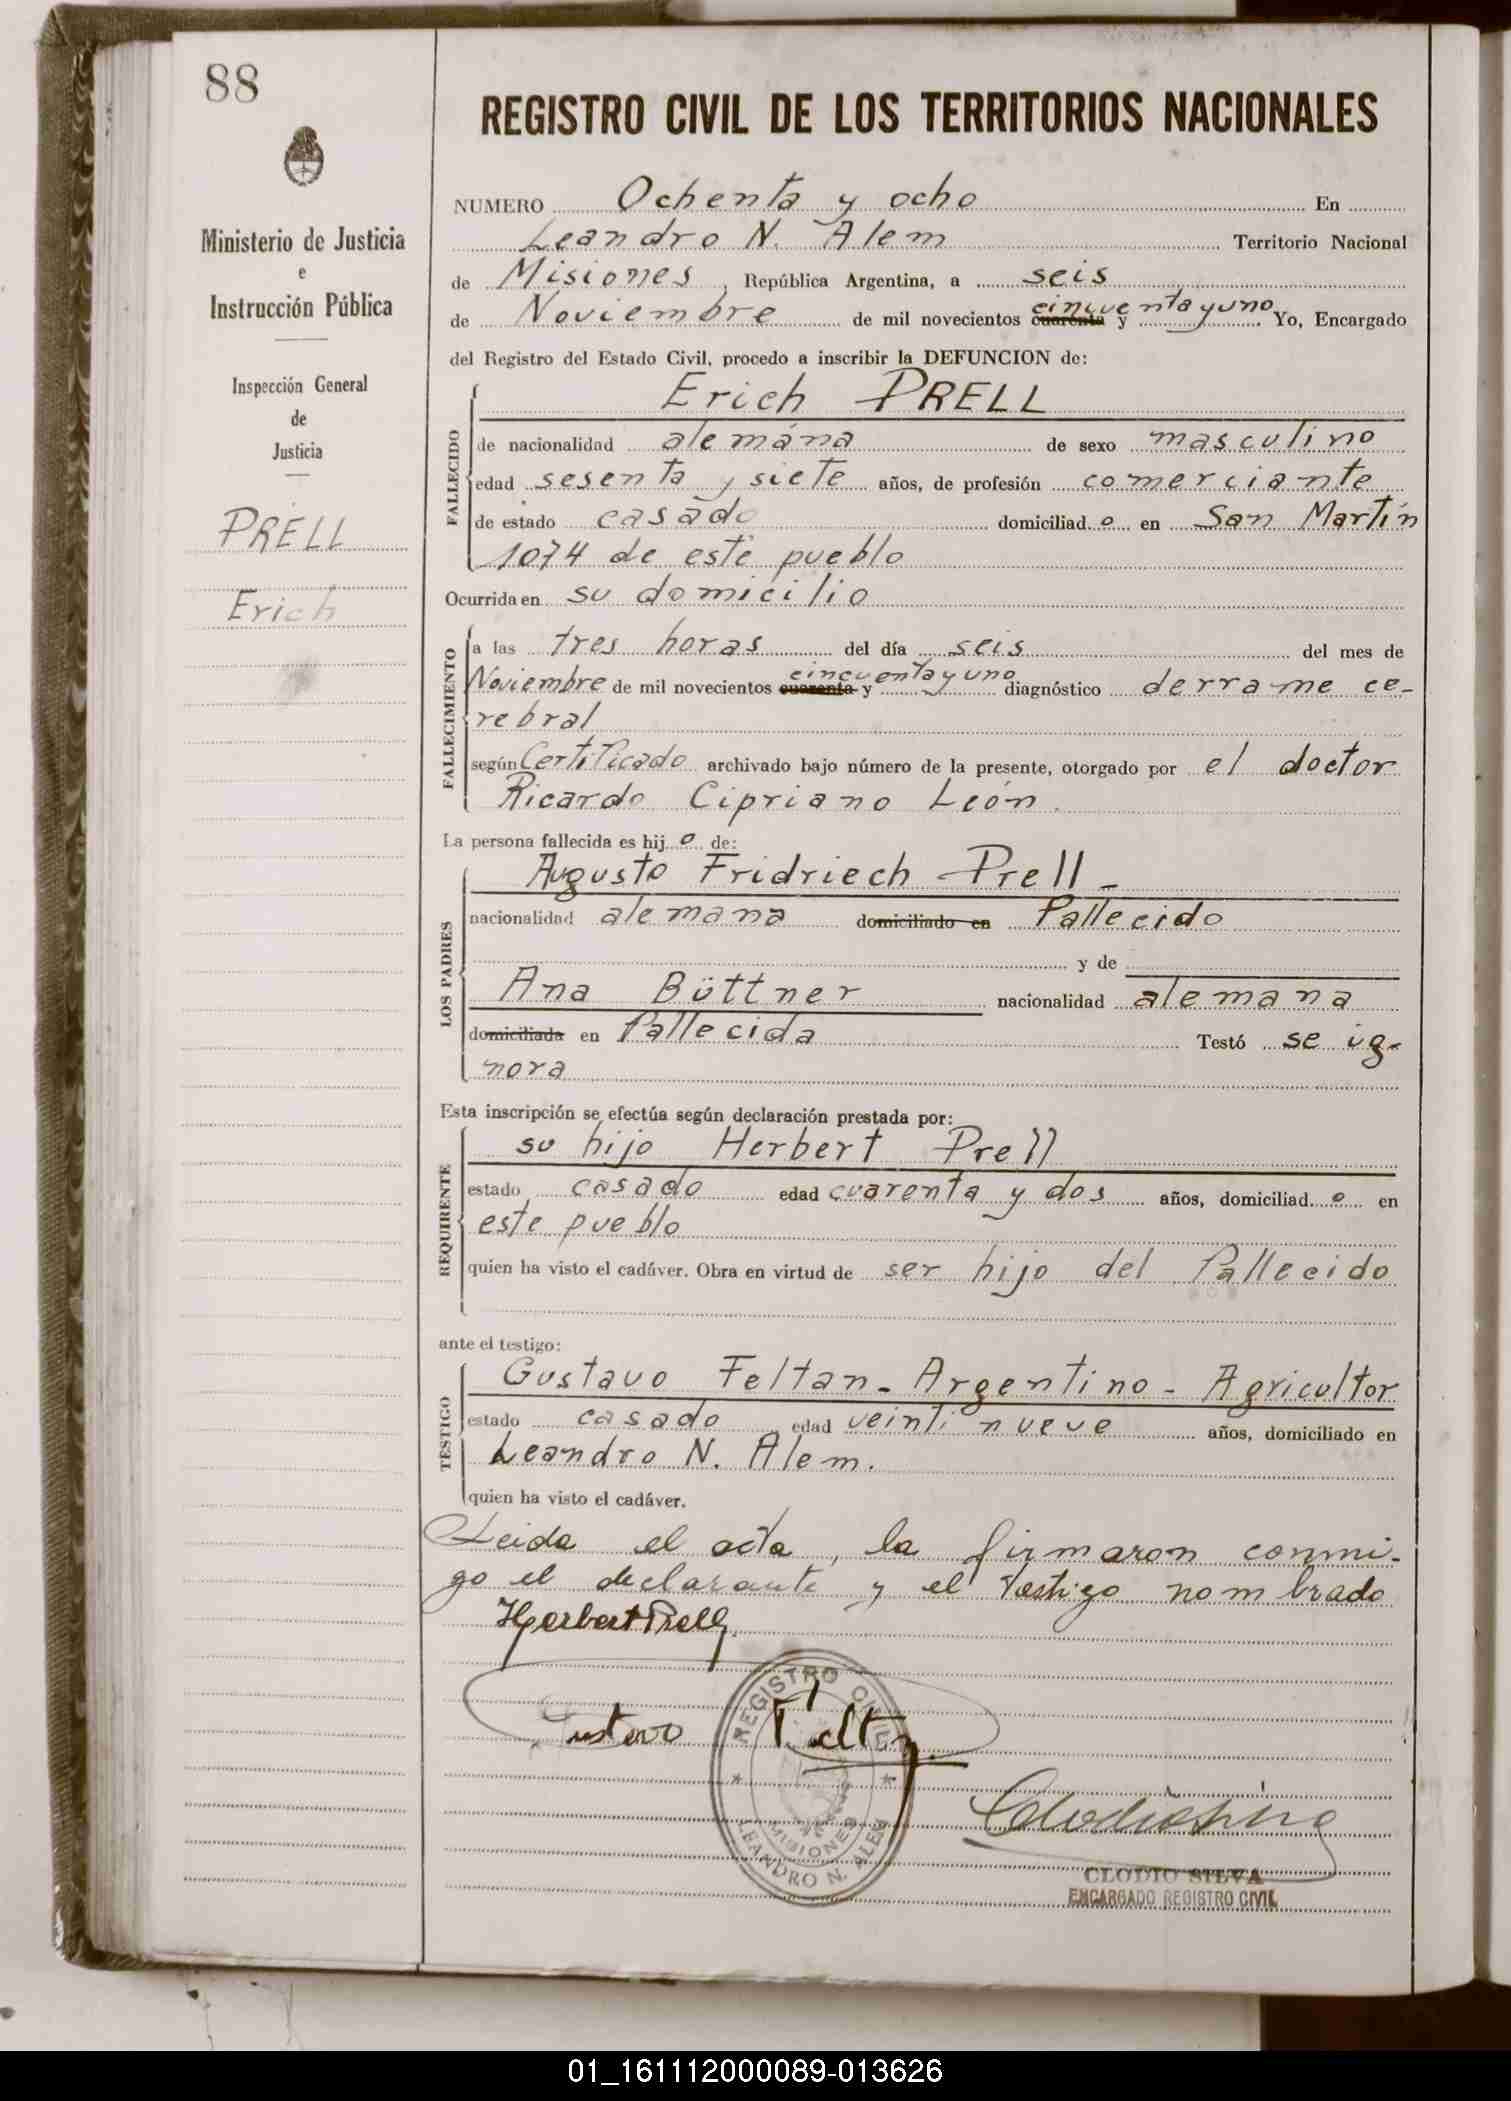 88
Ministerio de Justicia
e
Instrucción Pública
Inspección General
de
Justicia
PRELL
Erich
REGISTRO CIVIL DE LOS TERRITORIOS NACIONALES
NUMERO Ochenta y ocho En
Leandro N. Alem Territorio Nacional
de Misiones, República Argentina, a seis
de Noviembre de mil novecientos cuarenta y cincuenta y uno Yo, Encargado
del Registro del Estado Civil, procedo a inscribir la DEFUNCION de:
FALLECIDO
Erich PRELL
de nacionalidad alemána de sexo masculino
edad sesenta y siete años, de profesión comerciante
de estado casado domiciliado en San Martín
1074 de este pueblo
Ocurrida en su domicilio
FALLECIMIENTO
a las tres horas del día seis del mes de
Noviembre de mil novecientos cuarenta y cincuenta y uno diagnóstico derrame ce-
rebral
según Certificado archivado bajo número de la presente, otorgado por el doctor
Ricardo Cipriano León.
La persona fallecida es hijo de:
LOS PADRES
Augusto Fridriech Prell -
nacionalidad alemana domiciliado en fallecido
y de
Ana Büttner nacionalidad alemana
domiciliada en fallecida Testó se ig-
nora
Esta inscripción se efectúa según declaración prestada por:
REQUIRENTE
su hijo Herbert Prell
estado casado edad cuarenta y dos años, domiciliado en
este pueblo
quien ha visto el cadáver. Obra en virtud de ser hijo del fallecido
ante el testigo:
TESTIGO
Gustavo Feltan - Argentino - Agricultor
estado casado edad veinti nueve años, domiciliado en
Leandro N. Alem.
quien ha visto el cadáver.
Leida el acta, la firmaron conmi-
go el declarante y el testigo nombrado
Herbert Prell
Gustavo Feltan
REGISTRO CIVIL
MISIONES
LEANDRO N. ALEM
Clodio Silva
CLODIO SILVA
ENCARGADO REGISTRO CIVIL
01_161112000089-013626